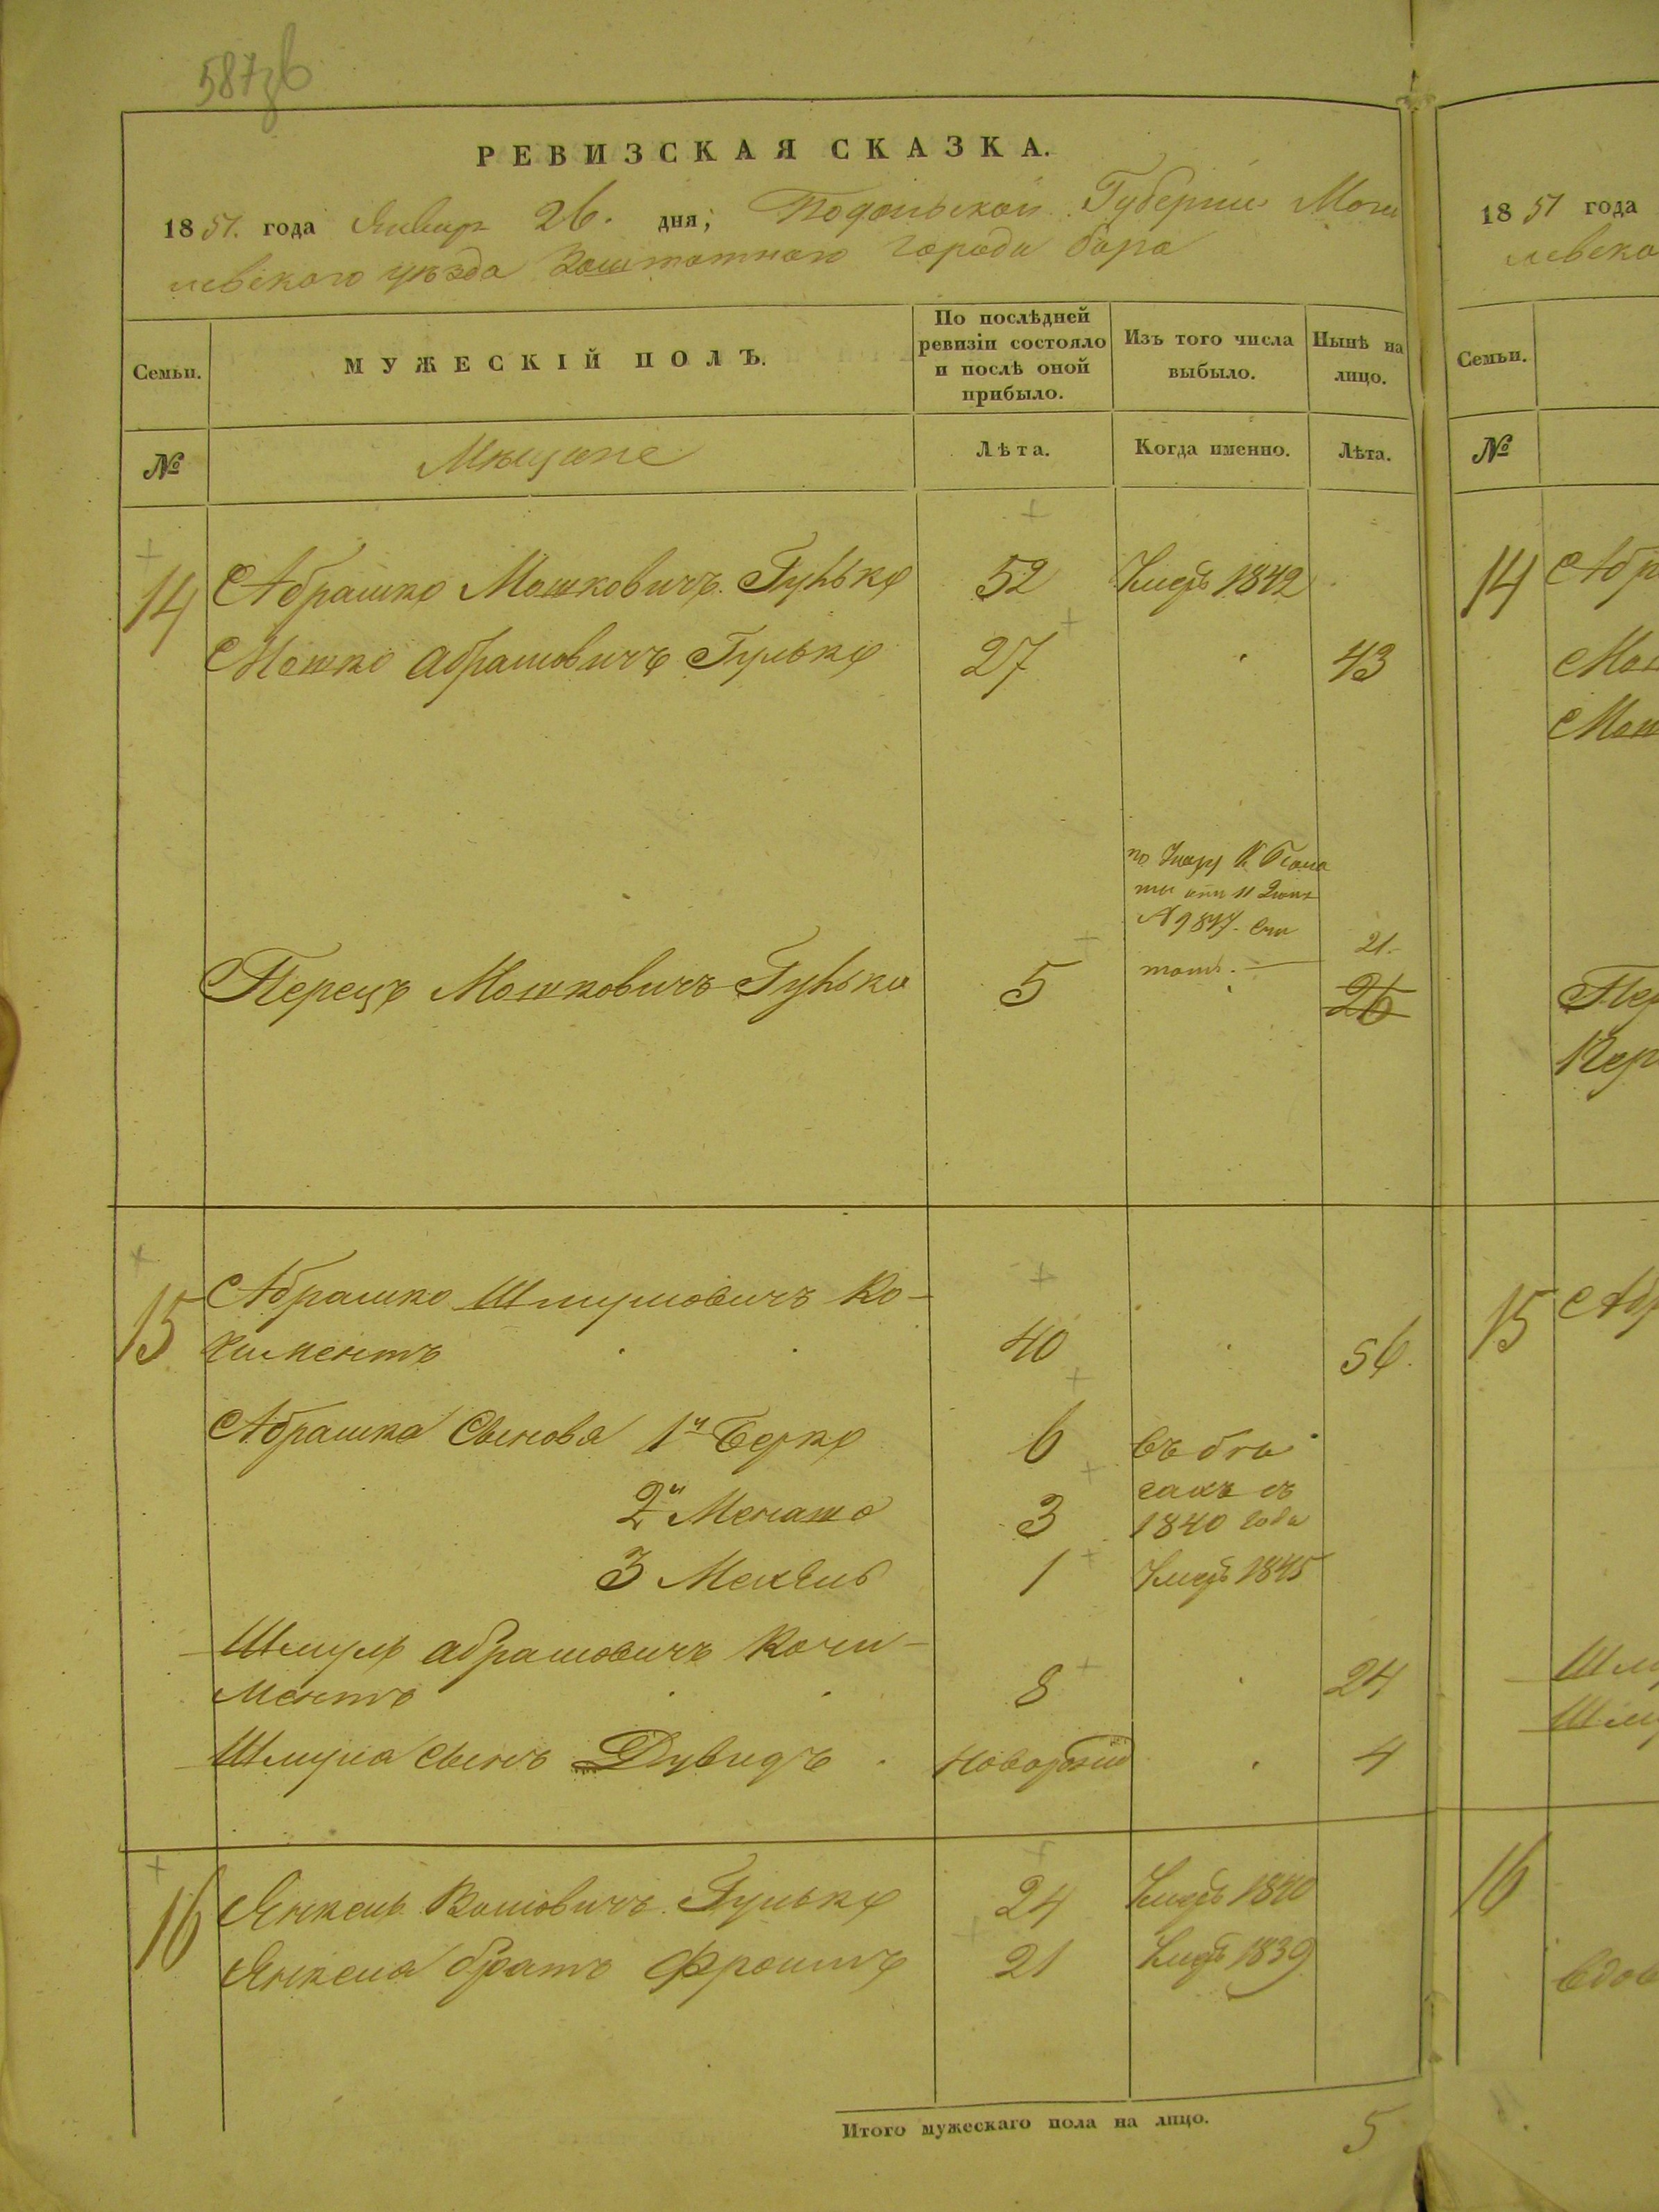 587об
РЕВИЗСКАЯ СКАЗКА.
1851. года Январ 26. дня, Подольской Губернии Моги
левского уезда Заштатного города бара
Семьи.
МУЖЕСКІЙ ПОЛЪ.
По послѣдней ревизіи состояло и послѣ оной прибыло.
Изъ того числа выбыло.
Нынѣ на лицо.
№
Мещане
Лѣта.
Когда именно.
Лѣта.
14 Абрашко Мошковичъ Гулько 52 1842
Мошко абрамовичъ Гулько 27 43
по К
11
Перецъ Мошковичъ Гулько 5 21 26
15 Абрашко Шмулиовичъ Ко-
чиментъ 40 56.
Абрашка Сынова 1й Берко 6 въ бѣ
2й Менашо 3 гахъ съ
1840 года
3 Мехель 1 1845
Шмуль абрамовичъ Кочи-
ментъ 8 24
Шмуля сынъ Дувидъ 4
16 Янкель Вольовичъ Гулько 24 1840
Янкеля братъ Фроимъ 21 1839
Итого мужескаго пола на лицо. 5
1851 года
левско
Семьи.
№
14 Абр
Мош
Мош
Пер
15 Абр
Шму
Шму
16
вдов